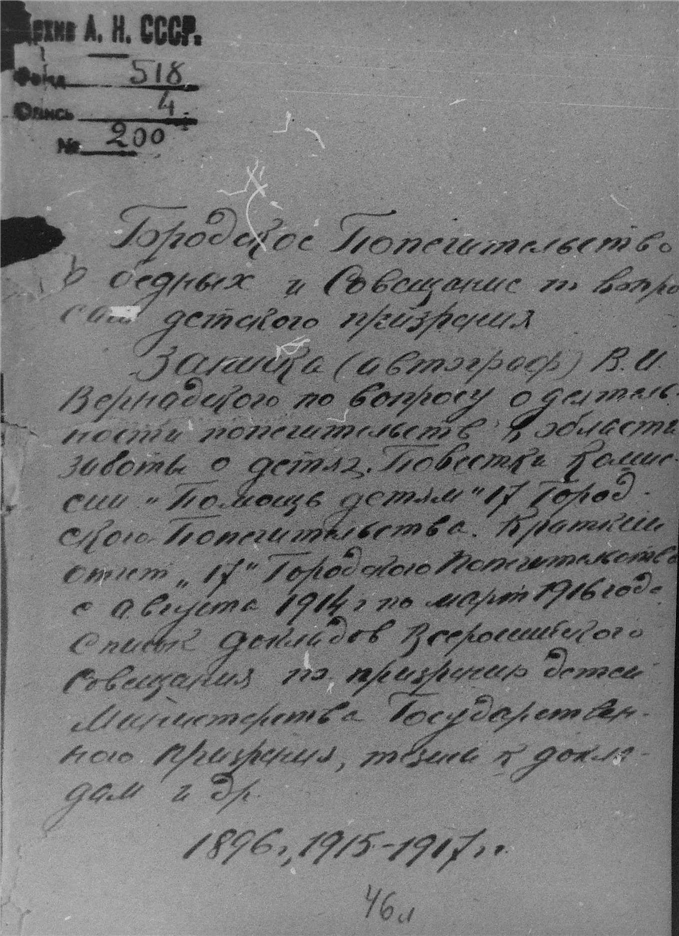 Архив А. Н. СССР.
Фонд 518
Опись 4
№ 200
Городское Попечительство
о бедных и Совещание по вопро
сам детского призрения
Записка (автограф) В. И.
Вернадского по вопросу о деятель-
ности попечительств в области
заботы о детях. Повестки комис-
сии "Помощь детям" 17 Город-
ского Попечительства. Краткий
отчет "17" Городского Попечительства
с августа 1914 г по март 1916 года.
Список докладов Всероссийского
Совещания по призрению детей
Министерства Государствен-
ного призрения, тезисы к докла-
дам и др.
1896г., 1915-1917 г.
46 л